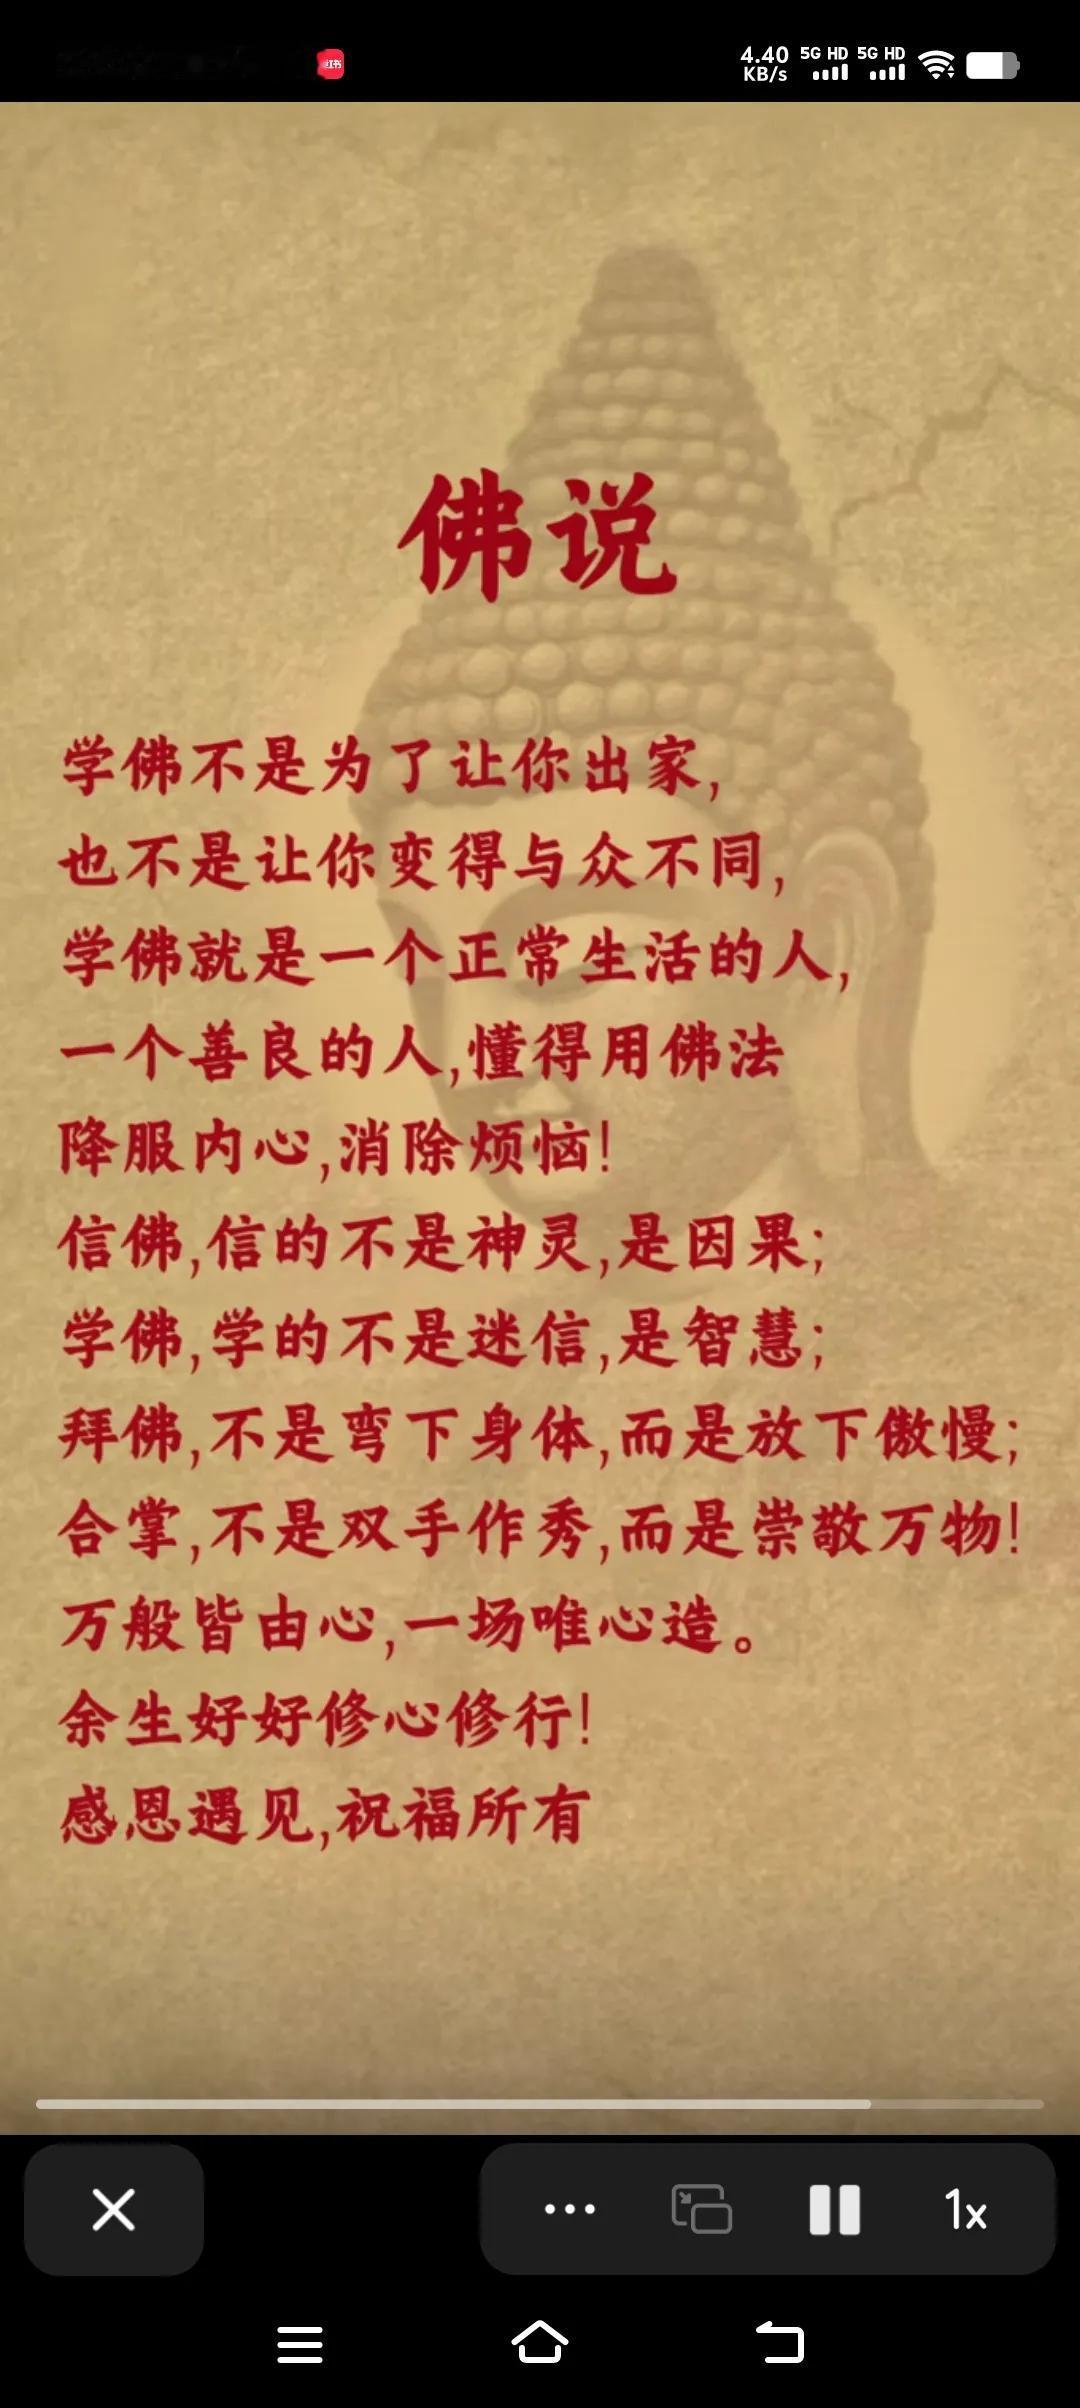 4.40 KB/s 5G HD 5G HD
佛说
学佛不是为了让你出家,
也不是让你变得与众不同,
学佛就是一个正常生活的人,
一个善良的人,懂得用佛法
降服内心,消除烦恼!
信佛,信的不是神灵,是因果;
学佛,学的不是迷信,是智慧;
拜佛,不是弯下身体,而是放下傲慢;
合掌,不是双手作秀,而是崇敬万物!
万般皆由心,一场唯心造。
余生好好修心修行!
感恩遇见,祝福所有
1x